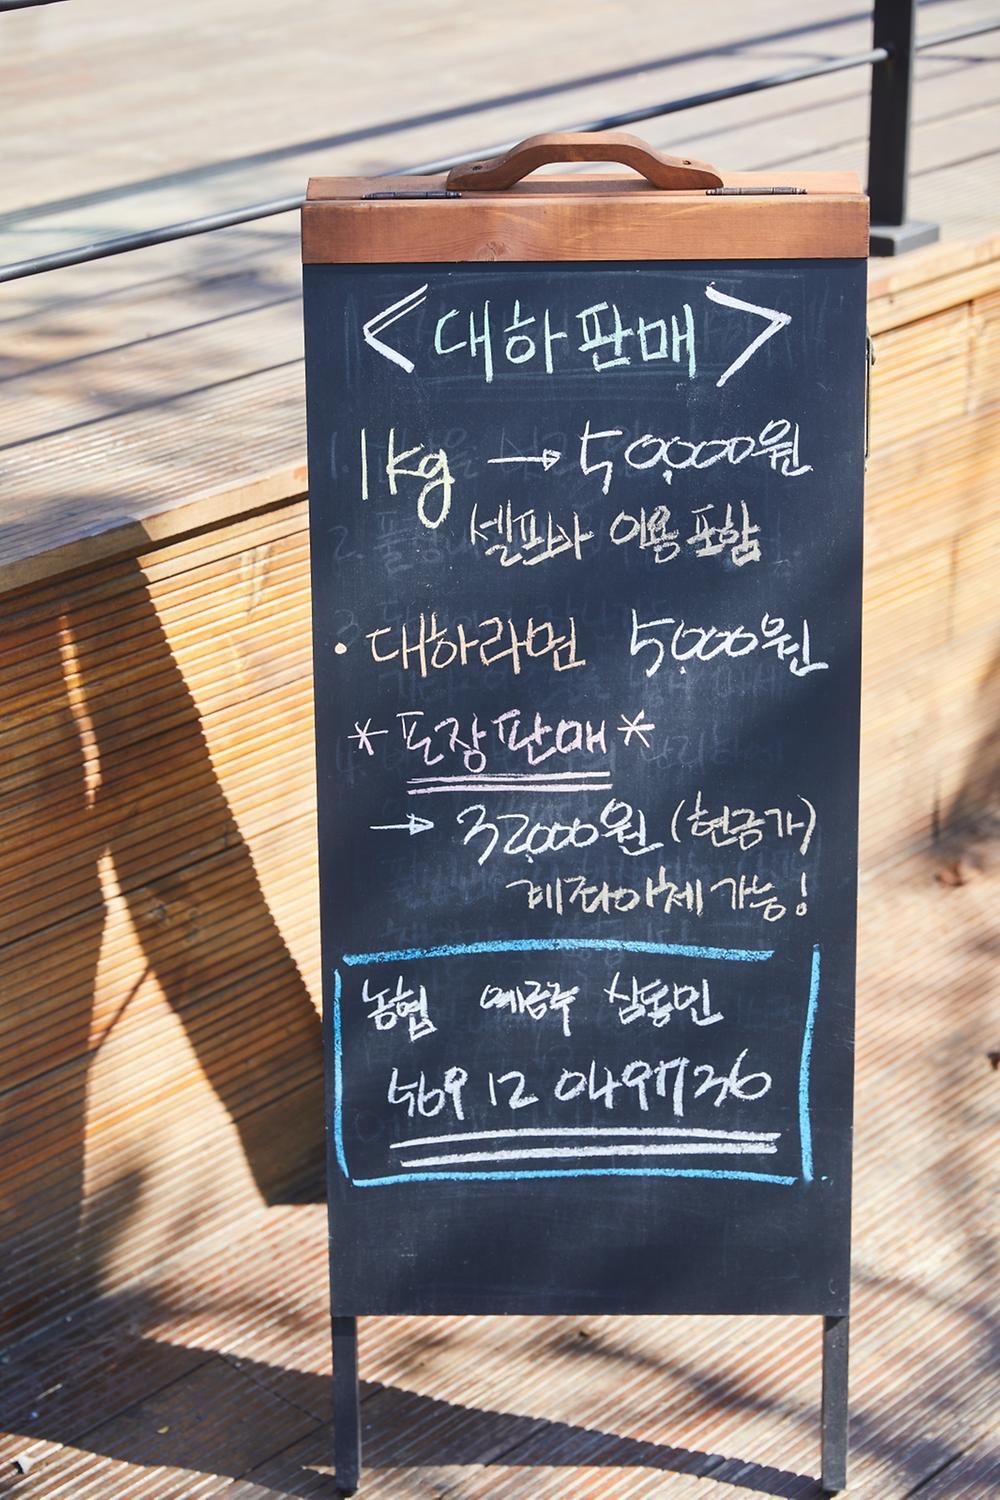 <대하판매>
1kg → 50,000원
셀프바 이용 포함
· 대하라면 5,000원
* 포장판매 *
→ 32,000원 (현금가)
계좌이체 가능!
농협 예금주 심동민
569 12 0497736